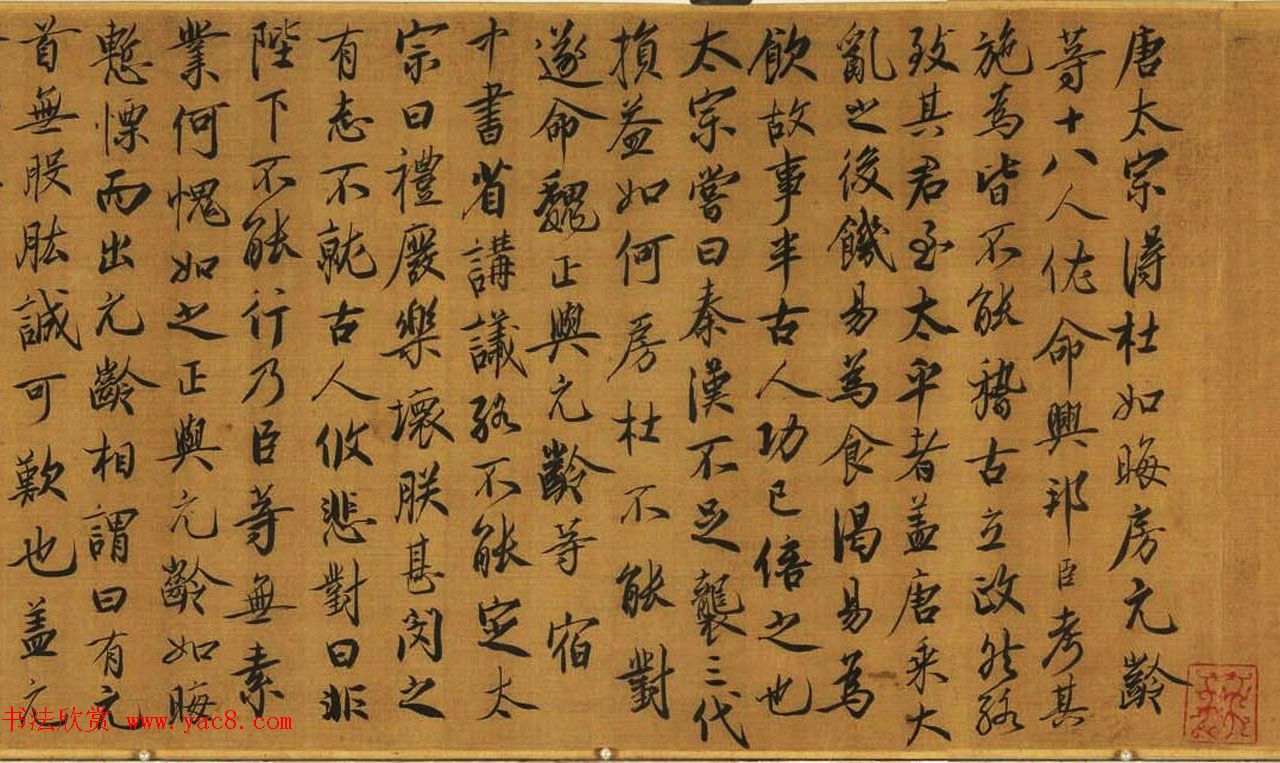 唐太宗得杜如晦房元齡
等十八人佐命興邦臣考其
施為皆不能稽古立政然終
致其君至太平者盖唐乘大
亂之後饑易為食渴易為
飲故事半古人功已倍之也
太宗嘗曰秦漢不足襲三代
損益如何房杜不能對
遂命魏正與元齡等宿
中書省講議終不能定太
宗曰禮廢樂壞朕甚閔之
有志不就古人攸悲對曰非
陛下不能行乃臣等無素
業何愧如之正與元齡如晦
慙慄而出元齡相謂曰有元
首無股肱誠可歎也盖元
书法欣赏 www.yac8.com